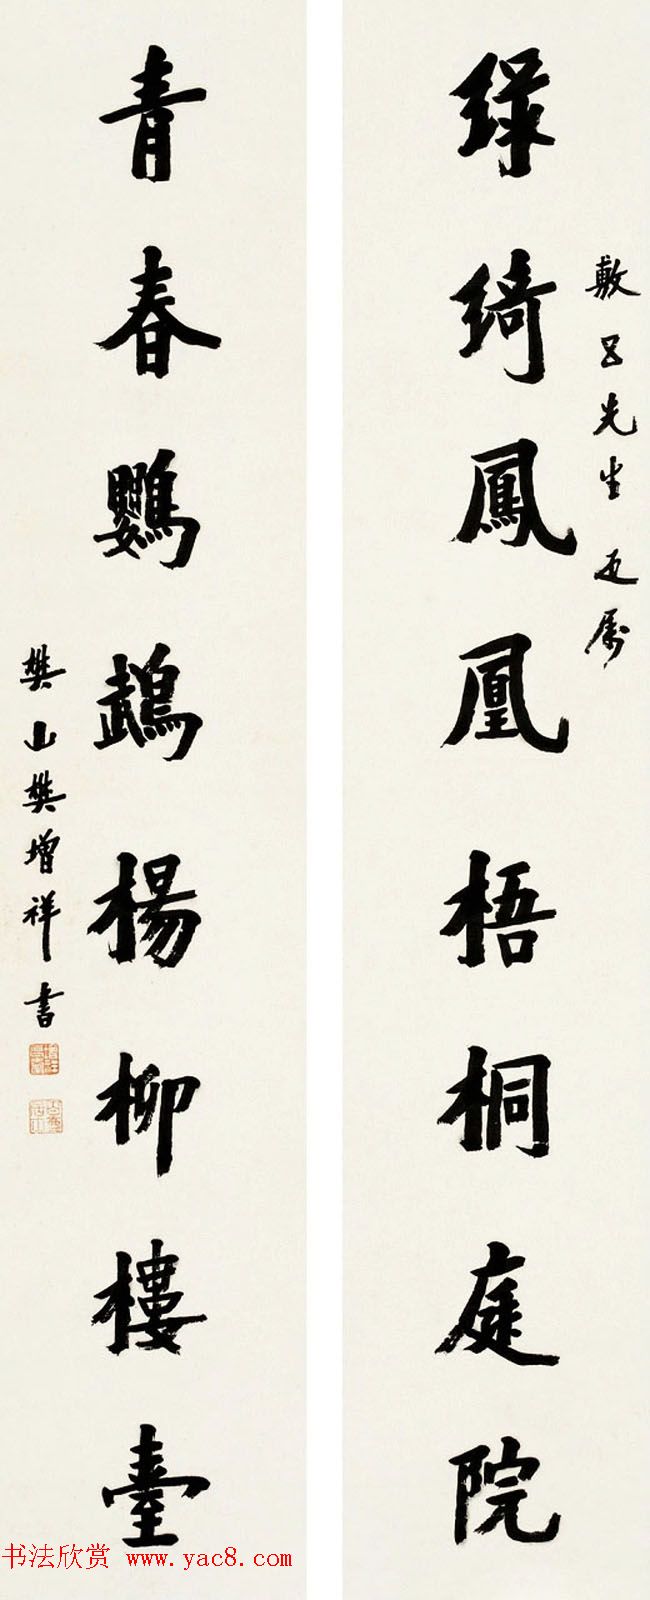 綠綺鳳凰梧桐庭院
敷吕先生正屬
青春鸚鵡楊柳樓臺
樊山樊增祥書
书法欣赏 www.yac8.com